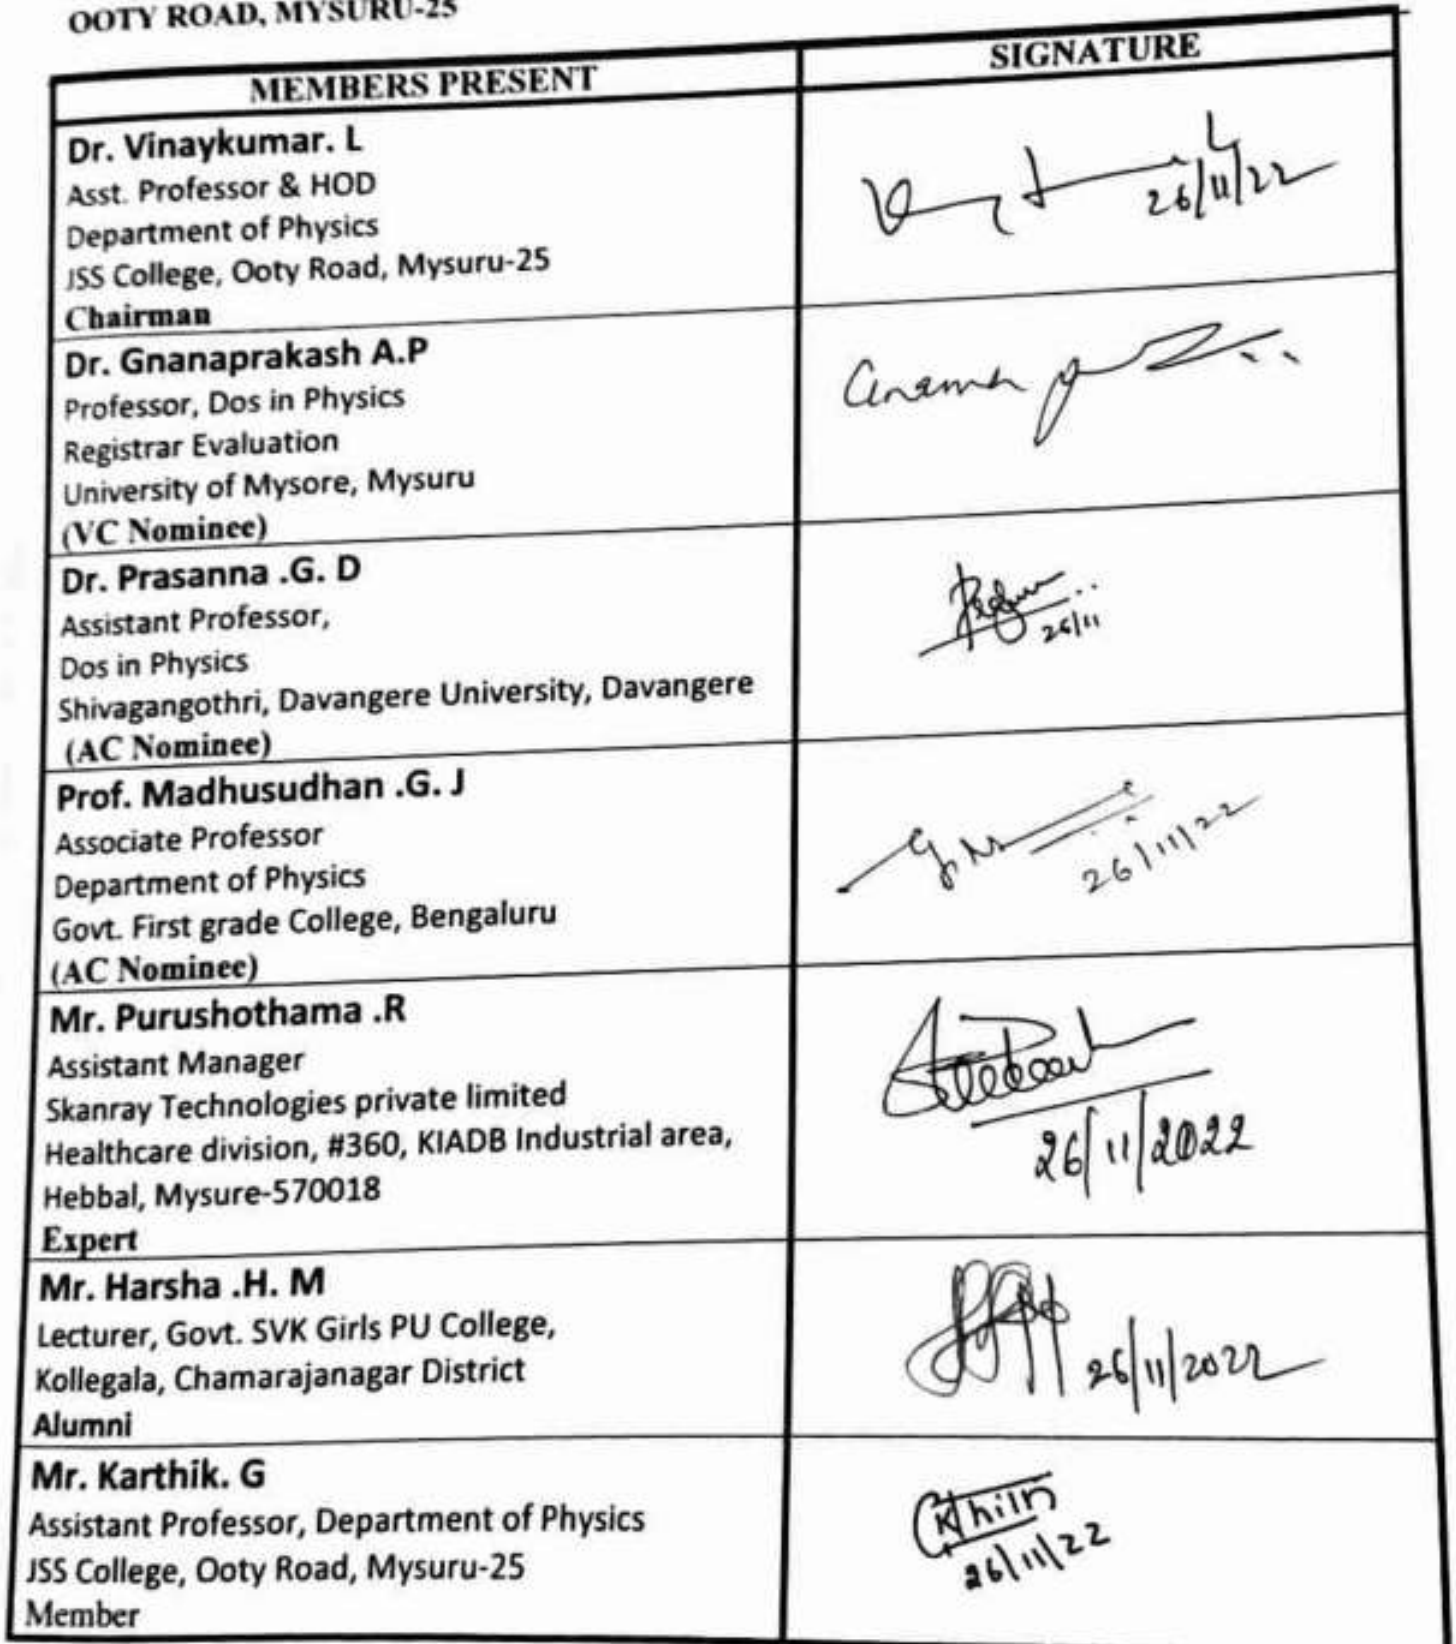 OOTY ROAD, MYSURU-25
MEMBERS PRESENT
SIGNATURE
Dr. Vinaykumar. L
Asst. Professor & HOD
Department of Physics
JSS College, Ooty Road, Mysuru-25
Chairman
26/11/22
Dr. Gnanaprakash A.P
Professor, Dos in Physics
Registrar Evaluation
University of Mysore, Mysuru
(VC Nominee)
Dr. Prasanna .G. D
Assistant Professor,
Dos in Physics
Shivagangothri, Davangere University, Davangere
(AC Nominee)
26/11
Prof. Madhusudhan .G. J
Associate Professor
Department of Physics
Govt. First grade College, Bengaluru
(AC Nominee)
26/11/22
Mr. Purushothama .R
Assistant Manager
Skanray Technologies private limited
Healthcare division, #360, KIADB Industrial area,
Hebbal, Mysure-570018
Expert
26/11/2022
Mr. Harsha .H. M
Lecturer, Govt. SVK Girls PU College,
Kollegala, Chamarajanagar District
Alumni
26/11/2022
Mr. Karthik. G
Assistant Professor, Department of Physics
JSS College, Ooty Road, Mysuru-25
Member
26/11/22